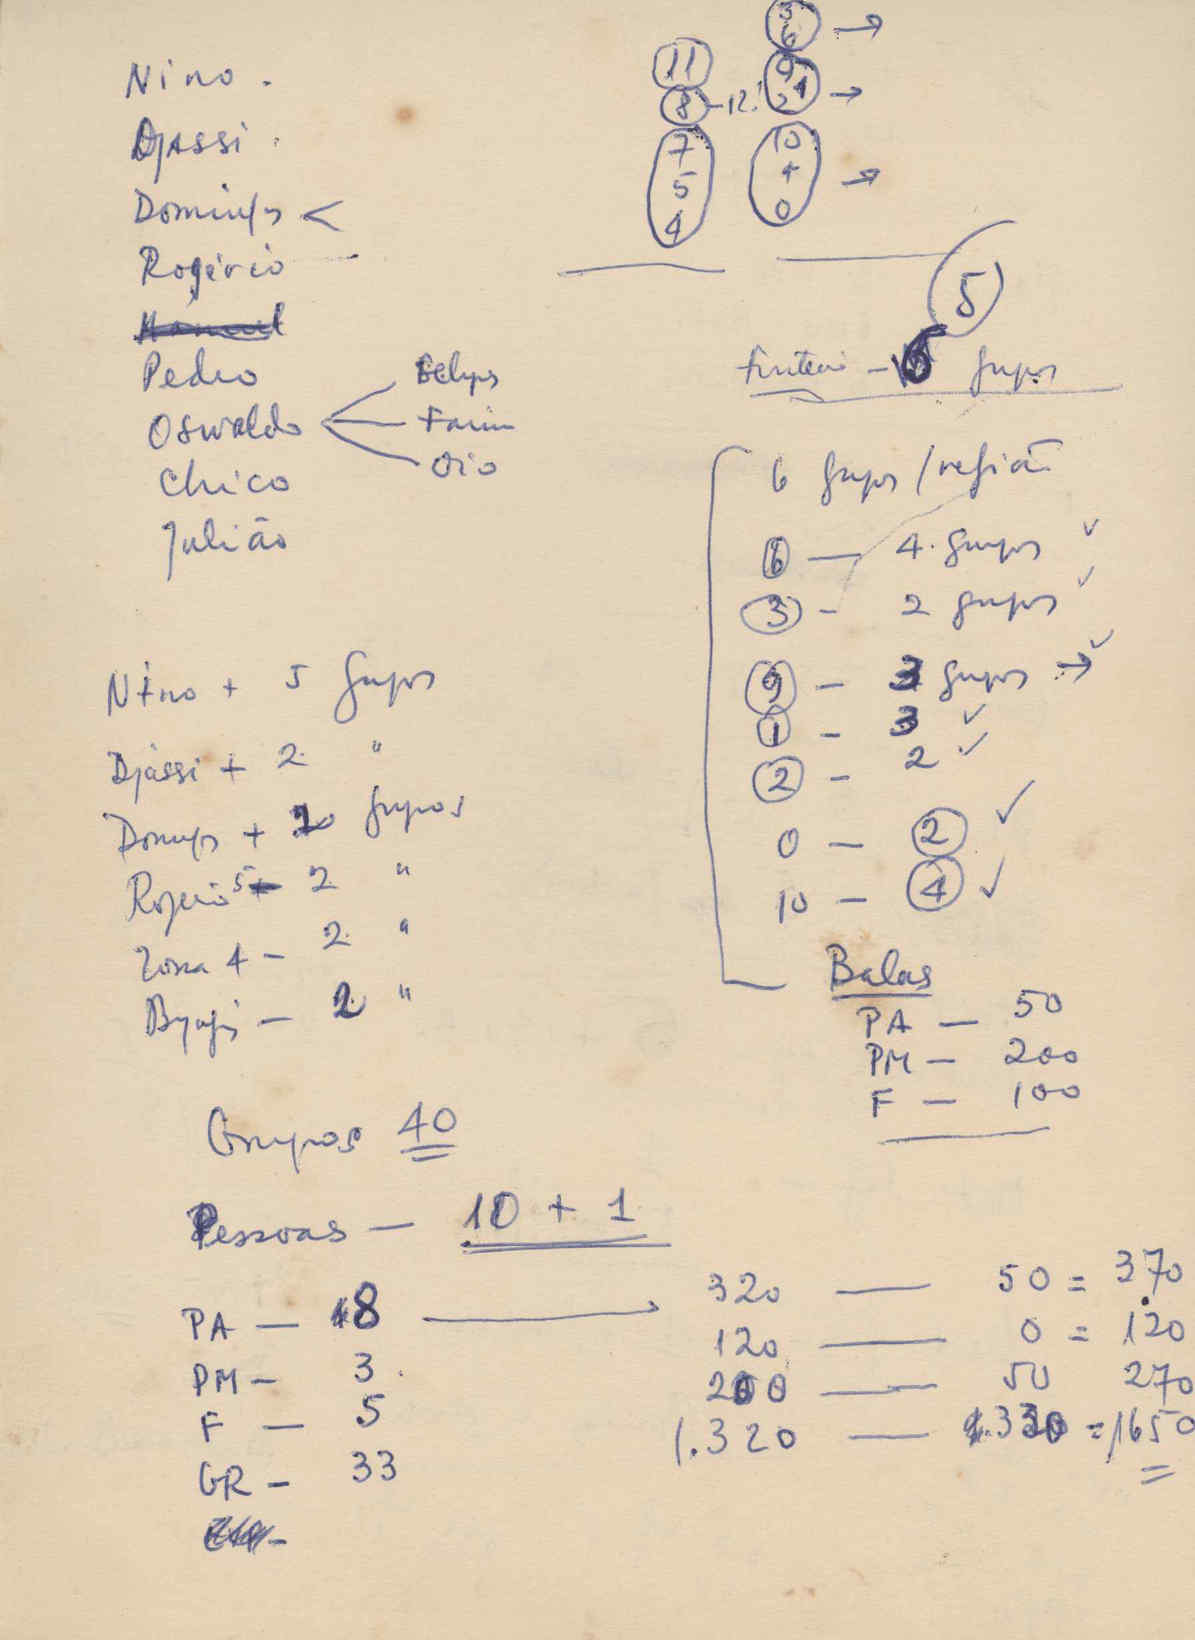 Nino.
Djassi.
Domingos <
Rogério
Pedro
Oswaldo
Farim
Oio
Chico
Julião
3
6 →
9
1
2 →
10
+
0 →
11
8 - 12!
7
5
4
5
- 6 grupos
6 grupos / região
6 — 4 grupos ✓
3 - 2 grupos ✓
9 - 3 grupos → ✓
1 - 3 ✓
2 - 2 ✓
0 - 2 ✓
10 - 4 ✓
Nino + 5 grupos
Djassi + 2 "
Domingos + 2 grupos
Rogério 5 - 2 "
Zona 4 - 2 "
- 2 "
Balas
PA — 50
PM — 200
F — 100
Grupos 40
Pessoas — 10 + 1
PA — 8 → 320 — 50 = 370
PM - 3. 120 — 0 = 120
F — 5 200 — 50 270
GR - 33 1.320 — 330 = 1650